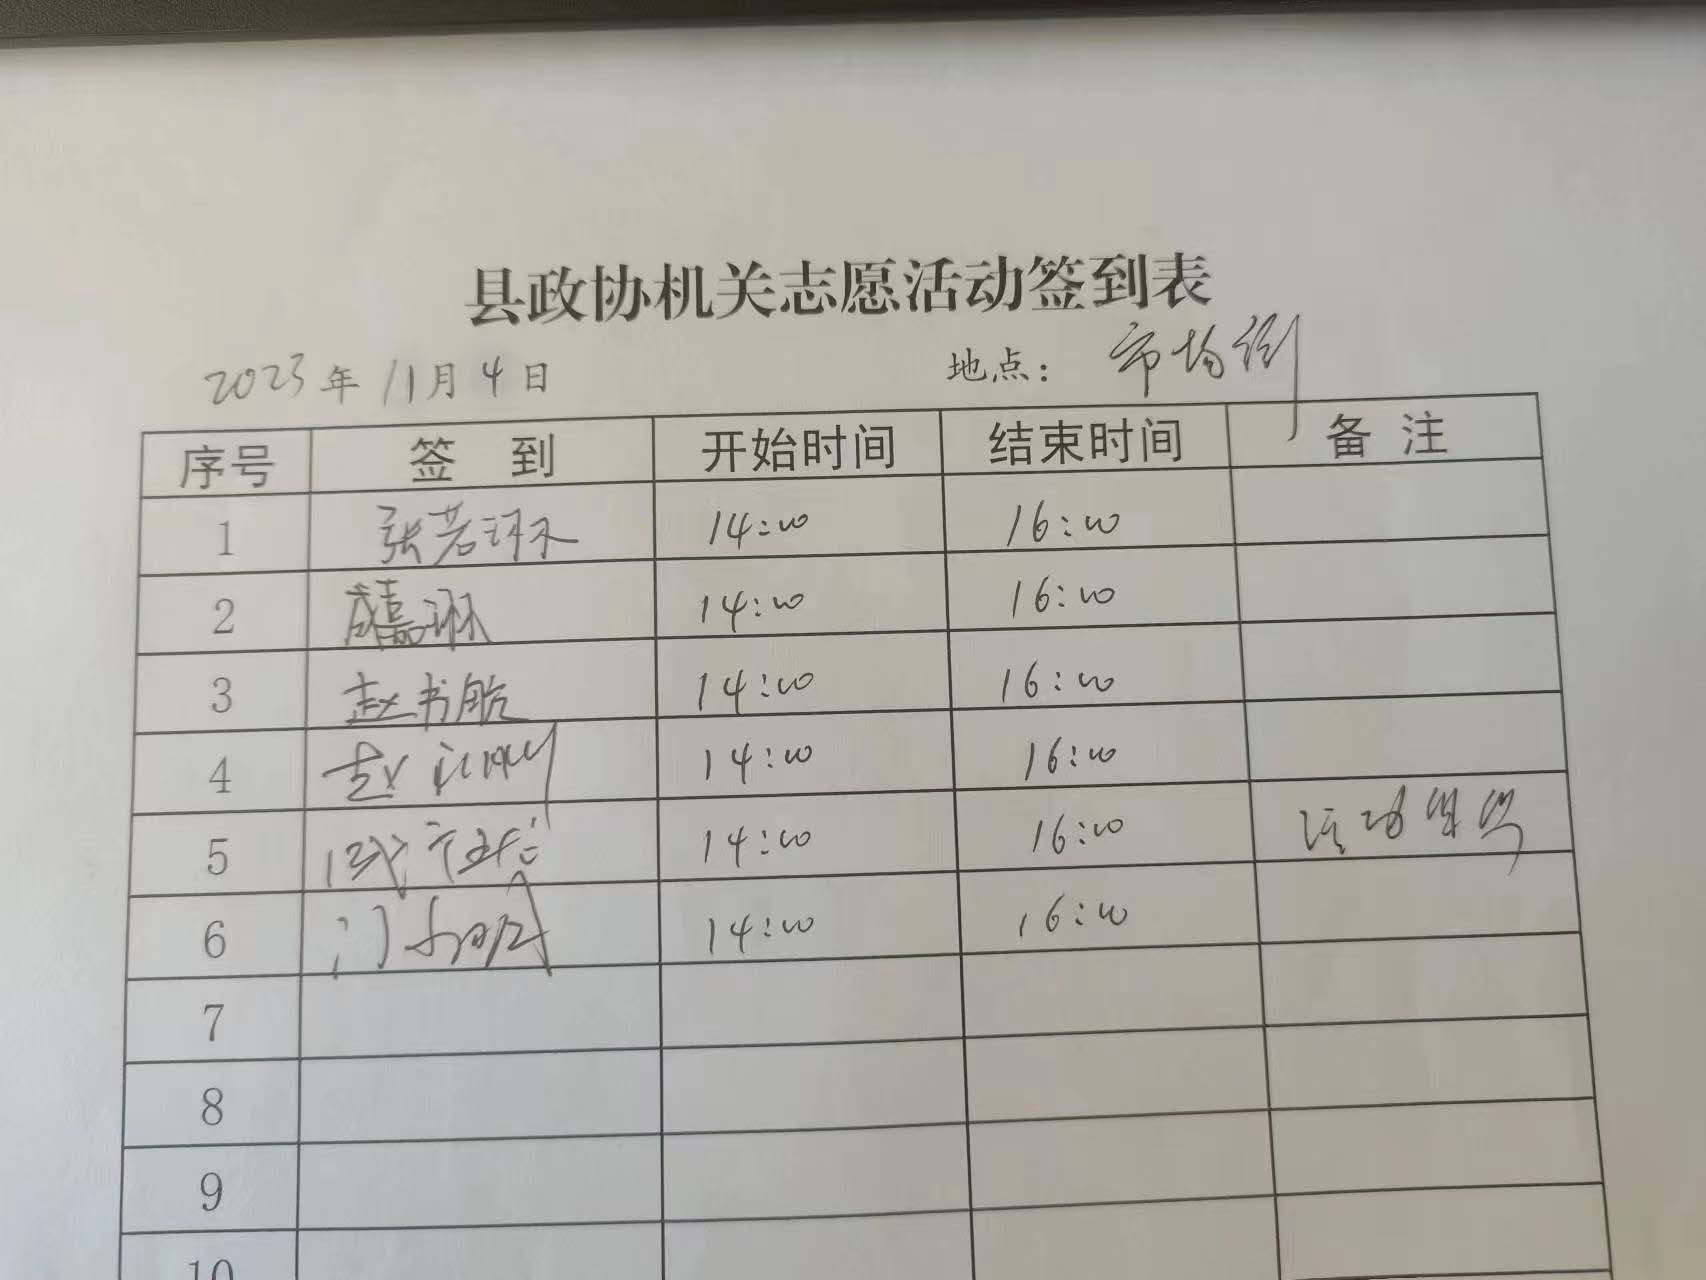 县政协机关志愿活动签到表
2023年11月4日 地点：市场街
序号 签到 开始时间 结束时间 备注
1 张若琳 14:00 16:00
2 盛嘉琳 14:00 16:00
3 赵书航 14:00 16:00
4 赵 14:00 16:00
5 14:00 16:00 活动
6 14:00 16:00
7
8
9
10